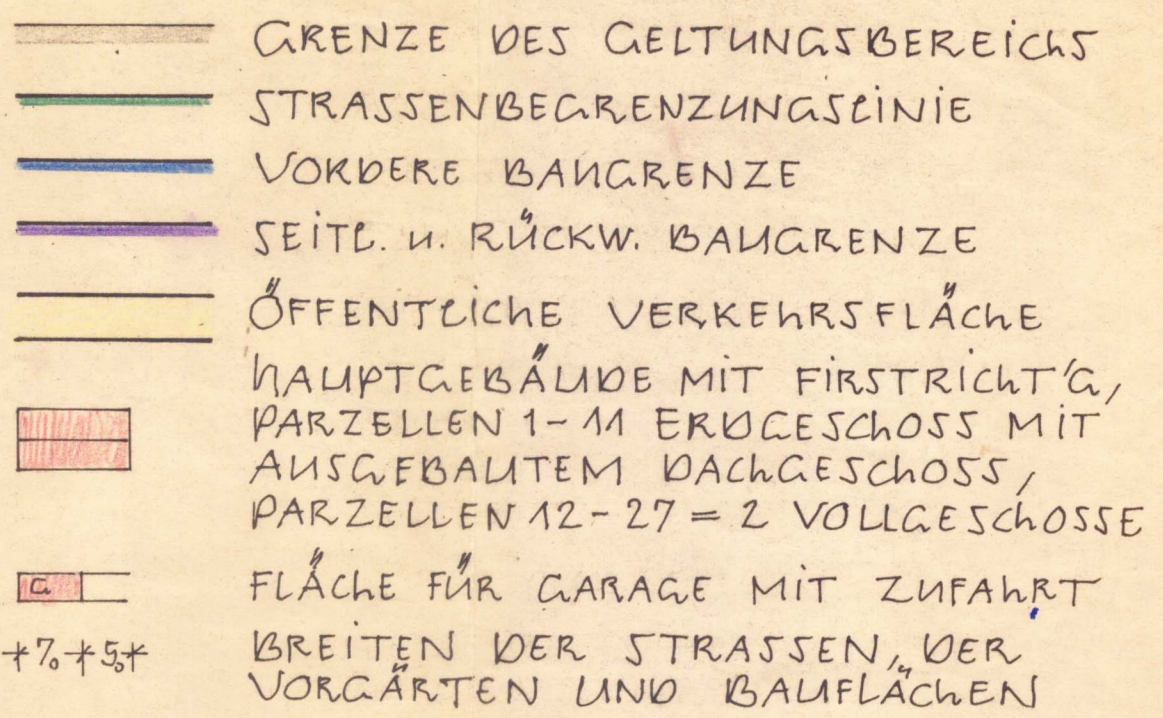 GRENZE DES GELTUNGSBEREIChS
STRASSENBEGRENZUNGSLINIE
VORDERE BAUGRENZE
SEITL. u. RÜCKW. BAUGRENZE
ÖFFENTLIChE VERKEhRSFLÄChE
hAUPTGEBÄUDE MIT FIRSTRIChT'G,
PARZELLEN 1-11 ERDGESChOSS MIT
AUSGEBAUTEM DAChGESChOSS,
PARZELLEN 12-27 = 2 VOLLGESChOSSE
G FLÄChE FÜR GARAGE MIT ZUFAhRT
7.0 5.0 BREITEN DER STRASSEN, DER
VORGÄRTEN UND BAUFLÄChEN